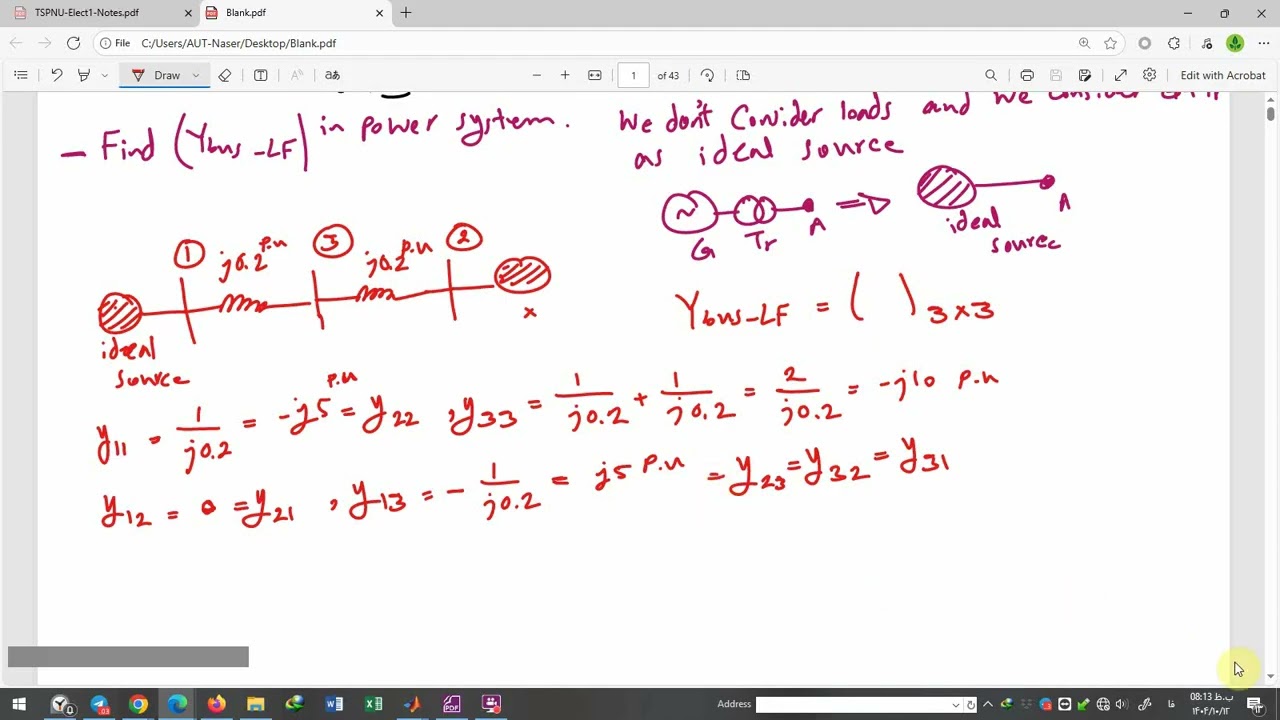 TSPNU-Elect1-Notes.pdf
Blank.pdf
File C:/Users/AUT-Naser/Desktop/Blank.pdf
Draw
1 of 43
Edit with Acrobat
- Find (Ybus-LF) in power system. We don't Consider loads and we consider
as ideal source
G Tr A ⇒ ideal source A
① j0.2 p.u ③ j0.2 p.u ②
ideal source
x
Ybus-LF = ( ) 3×3
y11 = 1/j0.2 = -j5 p.u = y22 , y33 = 1/j0.2 + 1/j0.2 = 2/j0.2 = -j10 p.u
y12 = 0 = y21 , y13 = - 1/j0.2 = j5 p.u = y23 = y32 = y31
Address
08:13 ب.ظ
۱۴۰۴/۱۰/۱۳
فا